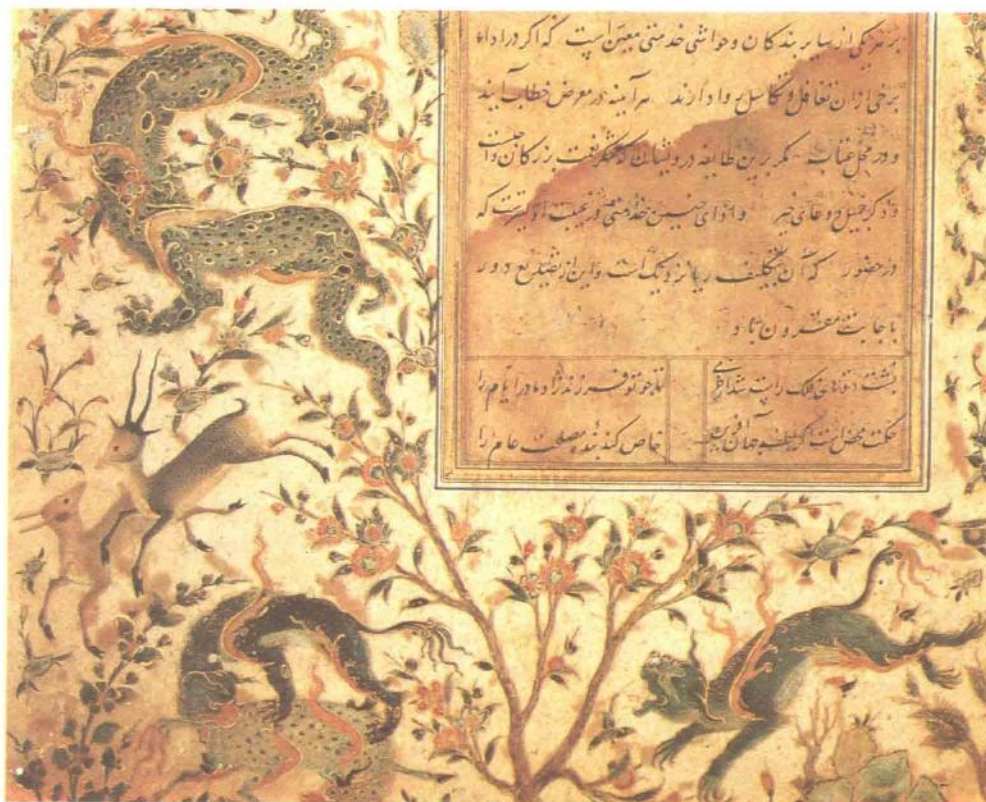 بر هر یکی از سایر بندگان و حواشی خدمتی معین است که اگر در اداء
برخی از آن تغافل و تکاسل روا دارند هر آینه در معرض خطاب آیند
و در محل عتاب مگر برین طایفه درویشان که شکر نعمت بزرگان واجبست
و ذکر جمیل و دعای خیر و ادای چنین خدمتی در غیبت اولیترست که
در حضور که آن بتکلف ریا نزدیک است و این از تصنع دور
باجابت مقرون باد
پشت دوتای فلک راست شد از خرمی تا چو تو فرزند زاد مادر ایام را
حکمت محض است گر لطف جهان آفرین خاص کند بنده مصلحت عام را